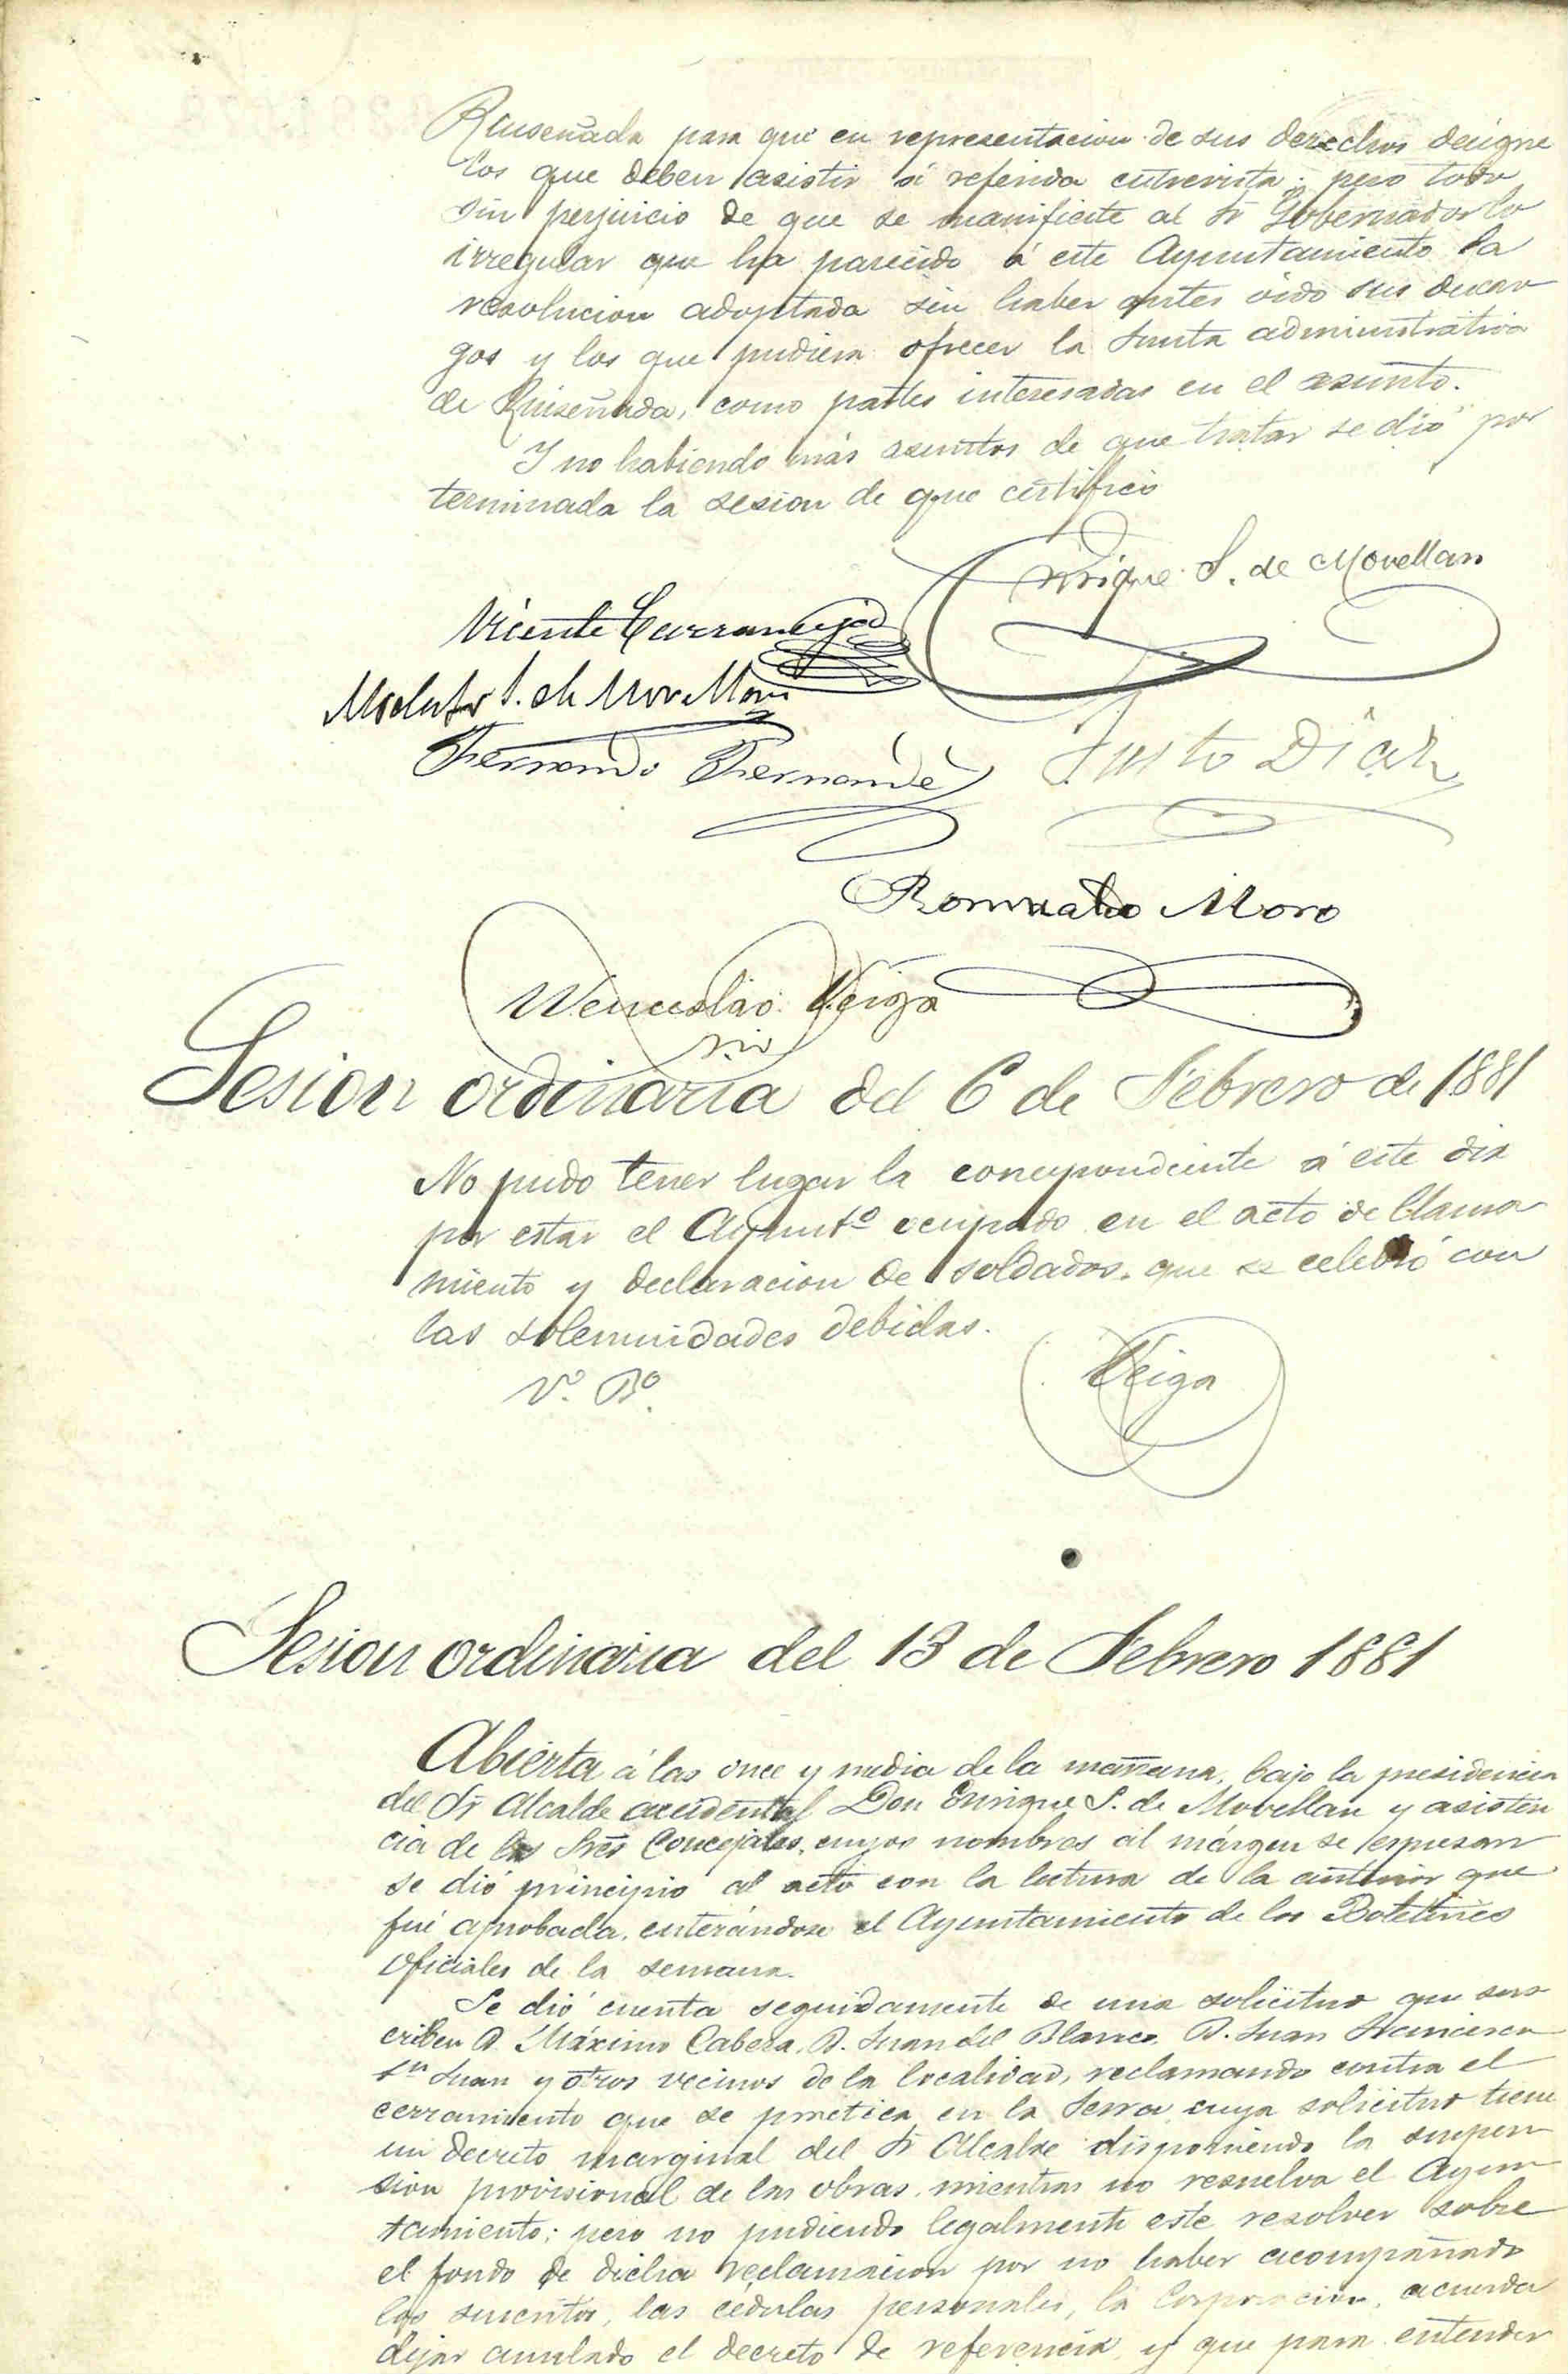 Ruiseñada para que en representacion de sus derechos designe
los que deben asistir á referida entrevista; pero todo
sin perjuicio de que se manifieste al Sr Gobernador lo
irregular que ha parecido á este Ayuntamiento la
resolucion adoptada sin haber antes oido sus descar
gos y los que pudiera ofrecer la Junta administrativa
de Ruiseñada, como partes interesadas en el asunto.
Y no habiendo más asuntos de que tratar se dió por
terminada la sesion de que certifico
Enrique S. de Movellan
Vicente Carranceja
Modesto S. de Movellan
Fernando Fernandez
Justo Diaz
Romualdo Moro
Wenceslao Veiga
Srio
Sesion ordinaria del 6 de Febrero de 1881
No pudo tener lugar la correspondiente á este dia
por estar el Ayuntº ocupado en el acto de llama
miento y declaracion de soldados, que se celebró con
las solemnidades debidas.
Vº Bº
Veiga
Sesion ordinaria del 13 de Febrero 1881
Abierta á las once y media de la mañana, bajo la presidencia
del Sr Alcalde accidental Don Enrique S. de Movellan y asisten
cia de los Sres Concejales, cuyos nombres al márgen se espresan
se dió principio al acto con la lectura de la anterior que
fué aprobada, enterándose el Ayuntamiento de los Boletines
oficiales de la semana.
Se dió cuenta seguidamente de una solicitud que sus
criben D. Máximo Cabeza, D. Juan del Blanco, D. Juan Francisco
Sn Juan y otros vecinos de la localidad, reclamando contra el
cerramiento que se practica en la Serra cuya solicitud tiene
un decreto marginal del Sr Alcalde disponiendo la suspen
sion provisional de las obras, mientras no resuelva el Ayun
tamiento; pero no pudiendo legalmente este resolver sobre
el fondo de dicha reclamacion por no haber acompañado
los suscritos, las cédulas personales, la Corporacion, acuerda
dejar anulado el decreto de referencia y que para entender